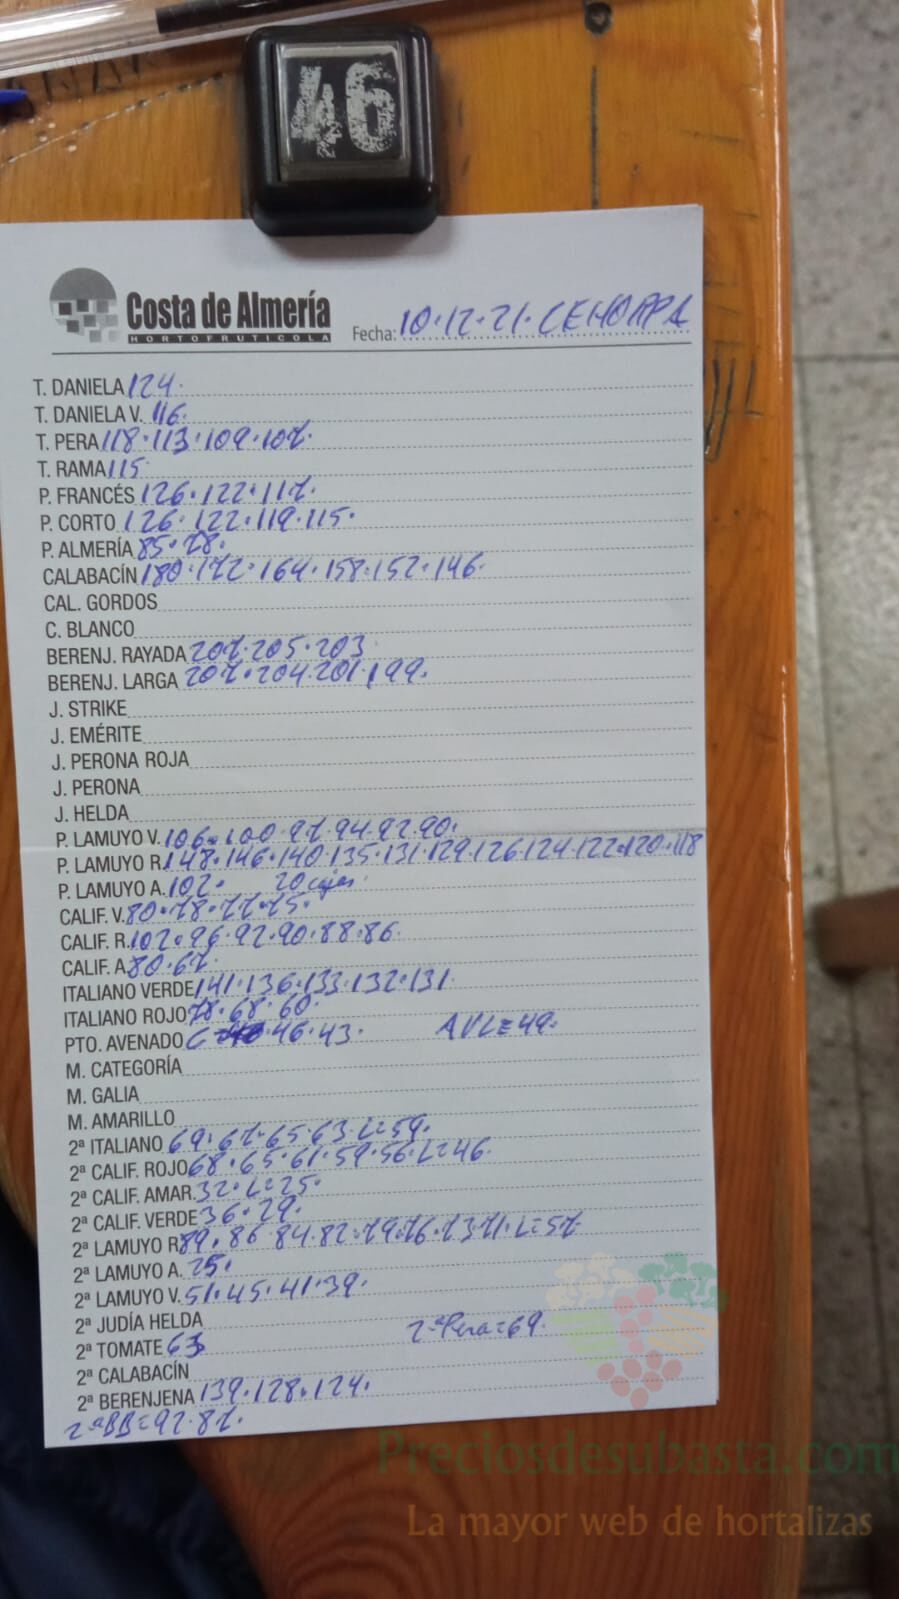 46
Costa de Almería
HORTOFRUTICOLA
Fecha: 10.12.21. CEHORPA
T. DANIELA 124.
T. DANIELA V. 116.
T. PERA 118.113.109.107.
T. RAMA 115.
P. FRANCÉS 126.122.117.
P. CORTO 126.122.119.115.
P. ALMERÍA 85.78.
CALABACÍN 180.172.164.158.152.146.
CAL. GORDOS
C. BLANCO
BERENJ. RAYADA 207.205.203
BERENJ. LARGA 207.204.201.199.
J. STRIKE
J. EMÉRITE
J. PERONA ROJA
J. PERONA
J. HELDA
P. LAMUYO V. 106.100.97.94.92.90.
P. LAMUYO R. 148.146.140.135.131.129.126.124.122.120.118
P. LAMUYO A. 102. 20 cajas.
CALIF. V. 80.78.77.75.
CALIF. R. 102.96.92.90.88.86.
CALIF. A. 80.67.
ITALIANO VERDE 141.136.133.132.131.
ITALIANO ROJO 78.68.60.
PTO. AVENADO C 46.43. AVL=49.
M. CATEGORÍA
M. GALIA
M. AMARILLO
2ª ITALIANO 69.67.65.63.L=59.
2ª CALIF. ROJO 68.65.61.59.56.L=46.
2ª CALIF. AMAR. 32.L=25.
2ª CALIF. VERDE 36.29.
2ª LAMUYO R 89.86.84.82.79.76.73.71.L=57
2ª LAMUYO A. 25.
2ª LAMUYO V. 51.45.41.39.
2ª JUDÍA HELDA
2ª TOMATE 63 2ªPera=69.
2ª CALABACÍN
2ª BERENJENA 139.128.124.
2ªBB=92.87.
Preciosdesubasta.com
La mayor web de hortalizas